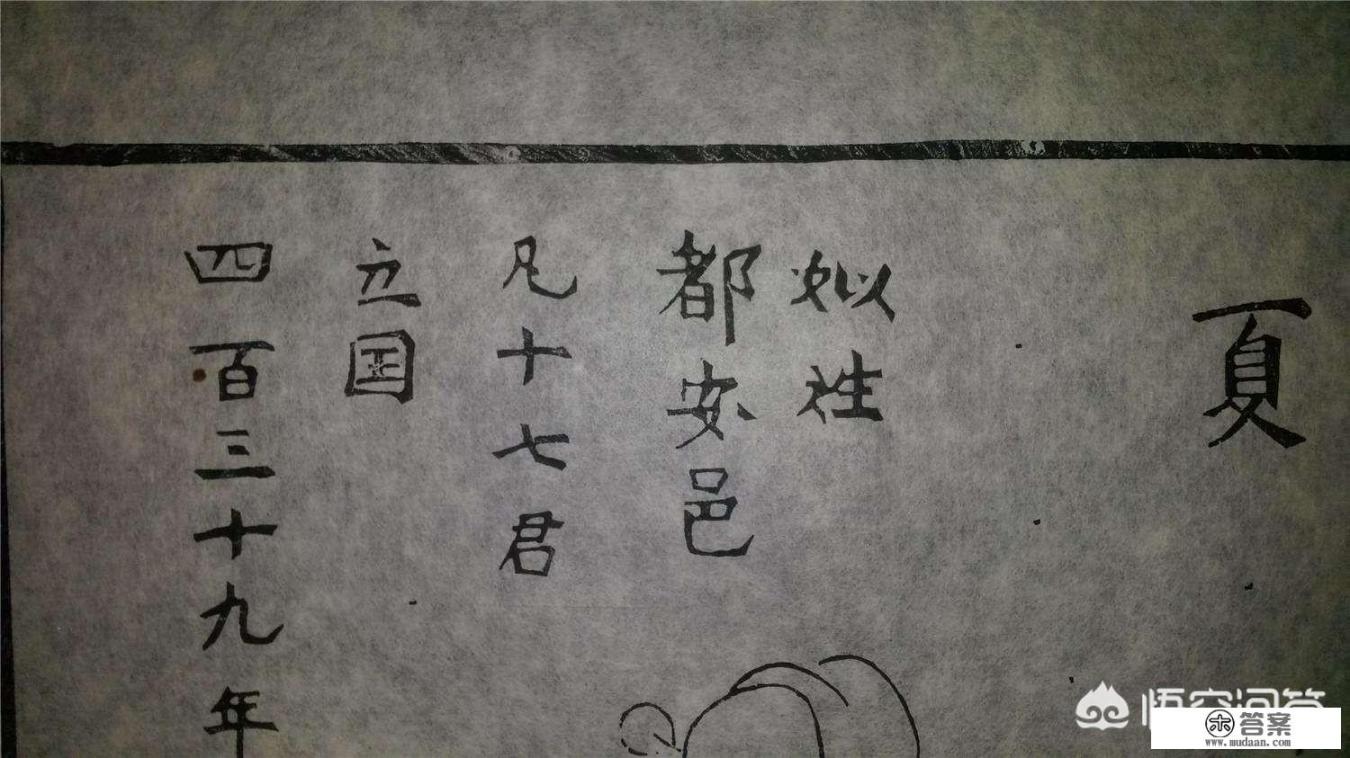 夏
姒姓
都安邑
凡十七君
立国
四百三十九年
悟空问答
答案
www.mudaan.com